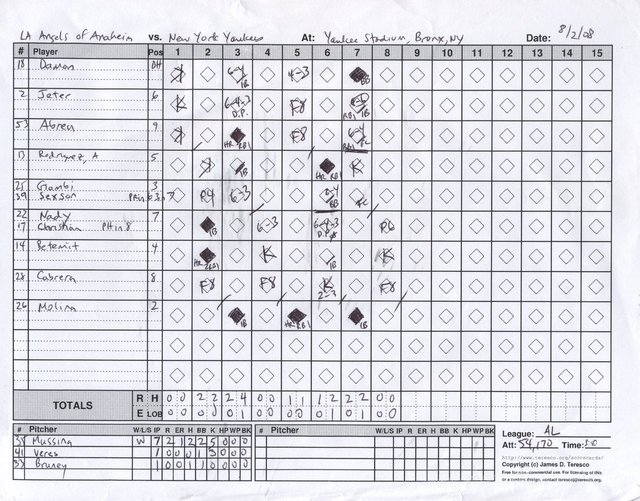 LA Angels of Anaheim vs. New York Yankees At: Yankee Stadium, Bronx, NY Date: 8/2/08
# Player Pos 1 2 3 4 5 6 7 8 9 10 11 12 13 14 15
18 Damon DH K 6-4 1B 4-3 BB
2 Jeter 6 K 6-4-3 D.P. F8 RBI 1B
53 Abreu 9 HR RBI F8 6-4 RBI FC
13 Rodriguez, A 5 1B HR RBI
25 Giambi 3 F4 6-3 5-4 FC
39 Sexson 3
22 Nady 7 1B 6-3 6-4-3 D.P. F6
17 Christian PH in 8
14 Betemit 4 HR 2RBI K 1B K
28 Cabrera 8 F8 F8 K 2-3 F8
26 Molina 2 1B HR RBI 1B
TOTALS R H 0 0 2 2 2 4 0 0 1 1 1 2 2 2 0 0
E LOB 0 0 0 0 0 1 0 0 0 0 0 1 0 1 0 0
# Pitcher W/L/S IP R ER H BB K HP WP BK # Pitcher W/L/S IP R ER H BB K HP WP BK
35 Mussina W 7 2 1 2 2 5 0 0 0
41 Veras 1 0 0 1 3 0 0 0
33 Bruney 1 0 0 1 1 0 0 0 0
League: AL
Att: 54,170 Time:
http://www.teresco.org/scorecards/
Copyright (c) James D. Teresco
Free for non-commercial use. For licensing of this
or a custom design, contact teresco@teresco.org.